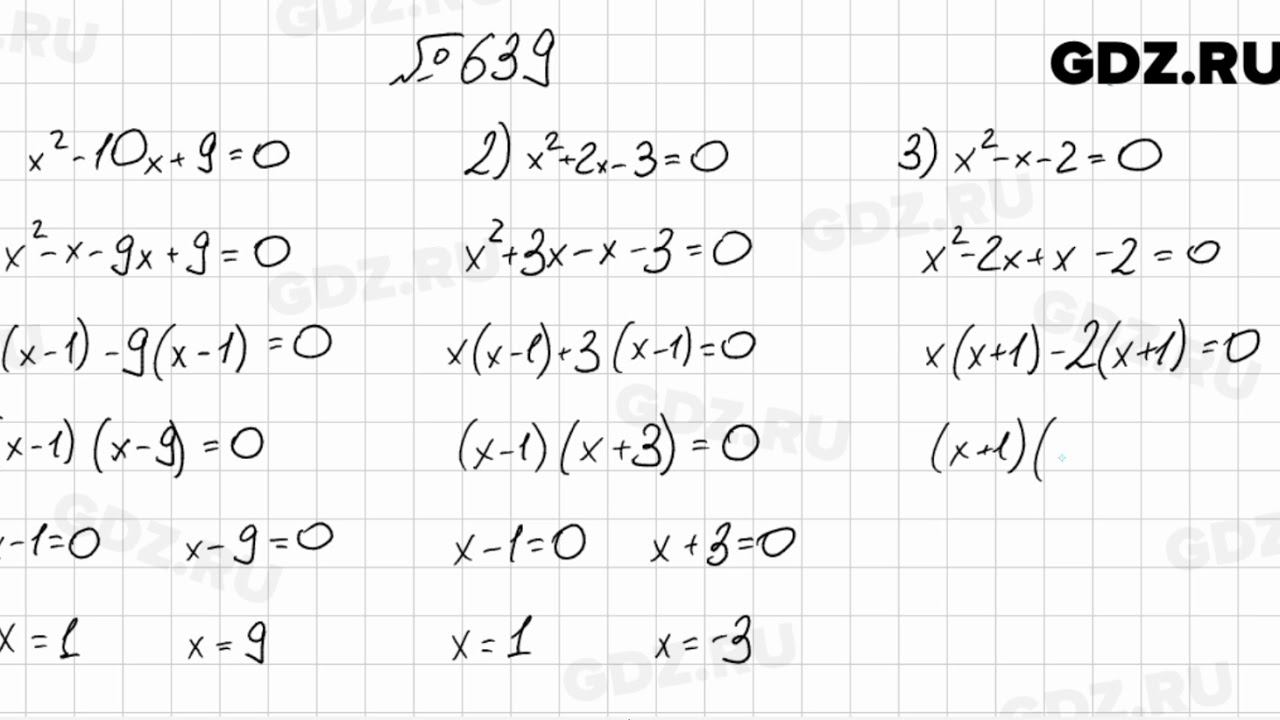 №639
GDZ.RU
x²-10x+9=0
x²-x-9x+9=0
(x-1)-9(x-1)=0
x-1)(x-9)=0
-1=0 x-9=0
x=1 x=9
2) x²+2x-3=0
x²+3x-x-3=0
x(x-1)+3(x-1)=0
(x-1)(x+3)=0
x-1=0 x+3=0
x=1 x=-3
3) x²-x-2=0
x²-2x+x-2=0
x(x+1)-2(x+1)=0
(x+1)(